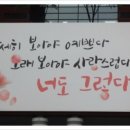 자세히 보아야 예쁘다
오래 보아야 사랑스럽다
너도 그렇다